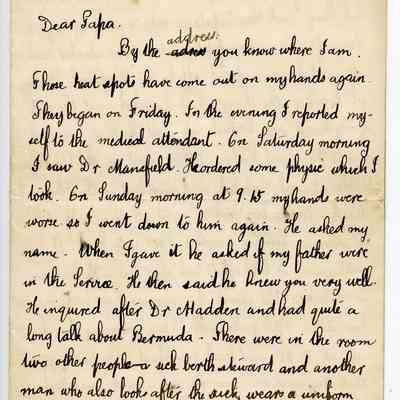 Dear Papa.
address:
By the adres you know where I am.
Those heat spots have come out on my hands again
They began on Friday. In the evening I reported my-
self to the medical attendant. On Saturday morning
I saw Dr Mansfield. He ordered some physic which I
took. On Sunday morning at 9.15 my hands were
worse so I went down to him again. He asked my
name. When I gave it he asked if my father were
in the Service. He then said he knew you very well.
He inquired after Dr Madden and had quite a
long talk about Bermuda. There were in the room
two other people—a sick berth steward and another
man who also looks after the sick, wears a uniform